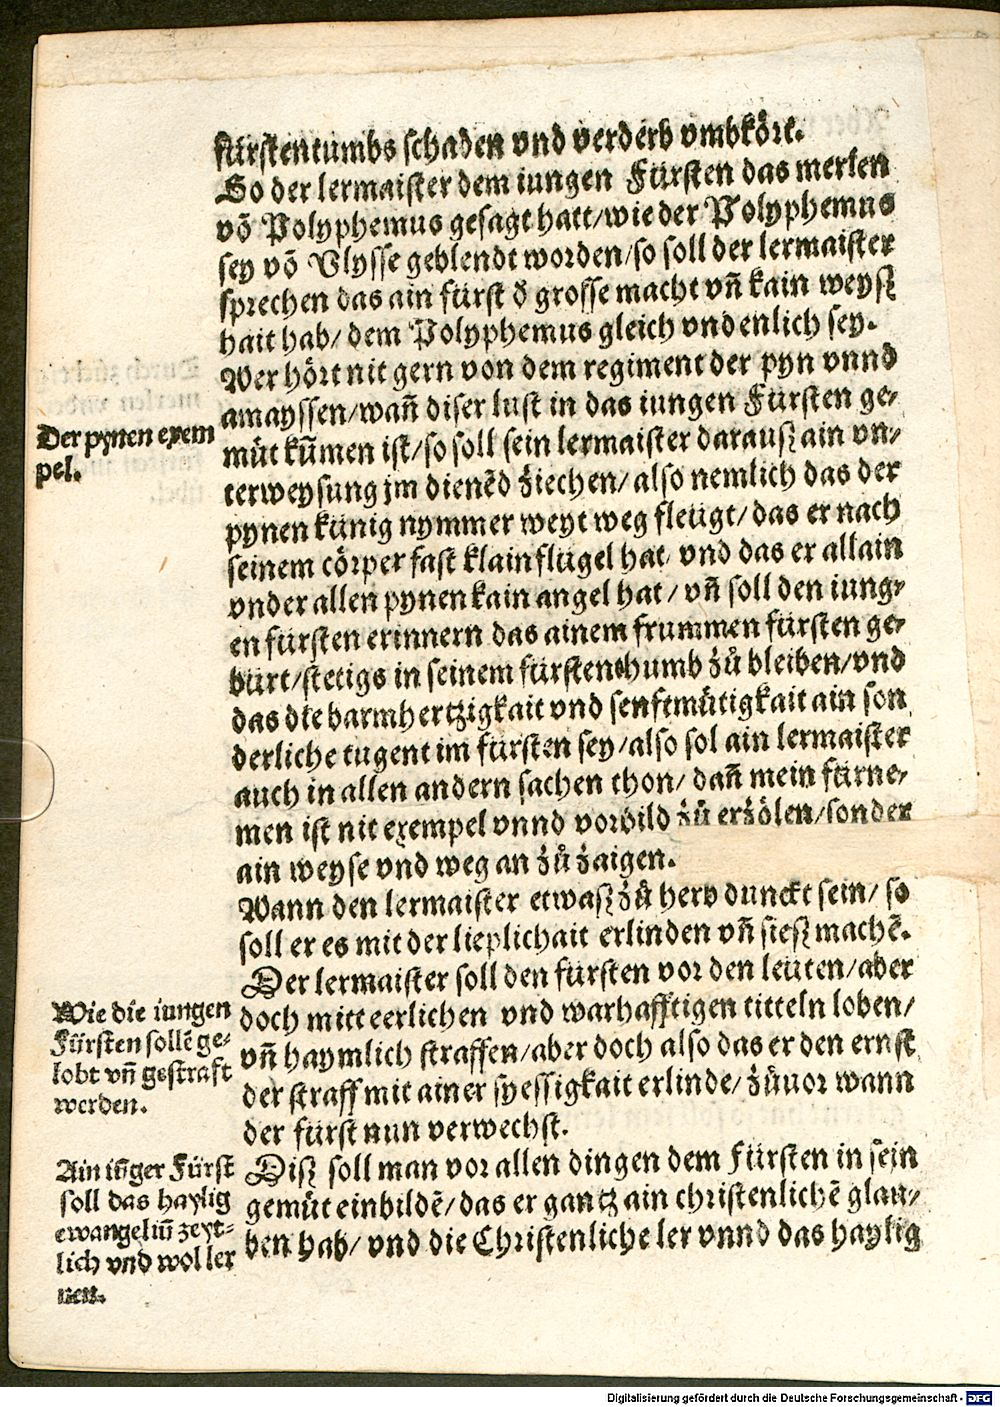 fürstentumbs schaden vnd verderb vmbköre.
So der lermaister dem iungen Fürsten das merlen
võ Polyphemus gesagt hatt/wie der Polyphemus
sey võ Vlysse geblendt worden/so soll der lermaister
sprechen das ain fürst d̕ grosse macht vñ kain weysz
hait hab/ dem Polyphemus gleich vnd enlich sey.
Wer hört nit gern von dem regiment der pyn vnnd
amayssen/wañ diser lust in das iungen Fürsten ge-
müt kũmen ist/so soll sein lermaister darausz ain vn-
terweysung jm dienẽd ziechen/ also nemlich das der
pynen künig nymmer weyt weg fleügt/ das er nach
seinem cörper fast klain flügel hat/ vnd das er allain
vnder allen pynen kain angel hat/ vñ soll den iung-
en fürsten erinnern das ainem frummen fürsten ge-
bürt/stetigs in seinem fürstenthumb zů bleiben/vnd
das die barmhertzigkait vnd senftmütigkait ain son
derliche tugent im fürsten sey/also sol ain lermaister
auch in allen andern sachen thon/ dañ mein fürne-
men ist nit exempel vnnd vorbild zů erzölen/sonder
ain weyse vnd weg an zů zaigen.
Wann den lermaister etwasz zů herb dunckt sein/ so
soll er es mit der lieplichait erlinden vñ siesz machẽ.
Der lermaister soll den fürsten vor den leüten/aber
doch mitt eerlichen vnd warhafftigen titteln loben/
vñ haymlich straffen/aber doch also das er den ernst
der straff mit ainer syessigkait erlinde/ zůuor wann
der fürst nun verwechst.
Disz soll man vor allen dingen dem fürsten in sein
gemüt einbildẽ/das er gantz ain christenlichẽ glau-
ben hab/ vnd die Christenliche ler vnnd das haylig
Der pynen exem
pel.
Wie die iungen
Fürsten sollẽ ge-
lobt vñ gestraft
werden.
Ain iũger Fürst
soll das haylig
ewangeliũ zeyt-
lich vnd wol ler
nen.
Digitalisierung gefördert durch die Deutsche Forschungsgemeinschaft - DFG